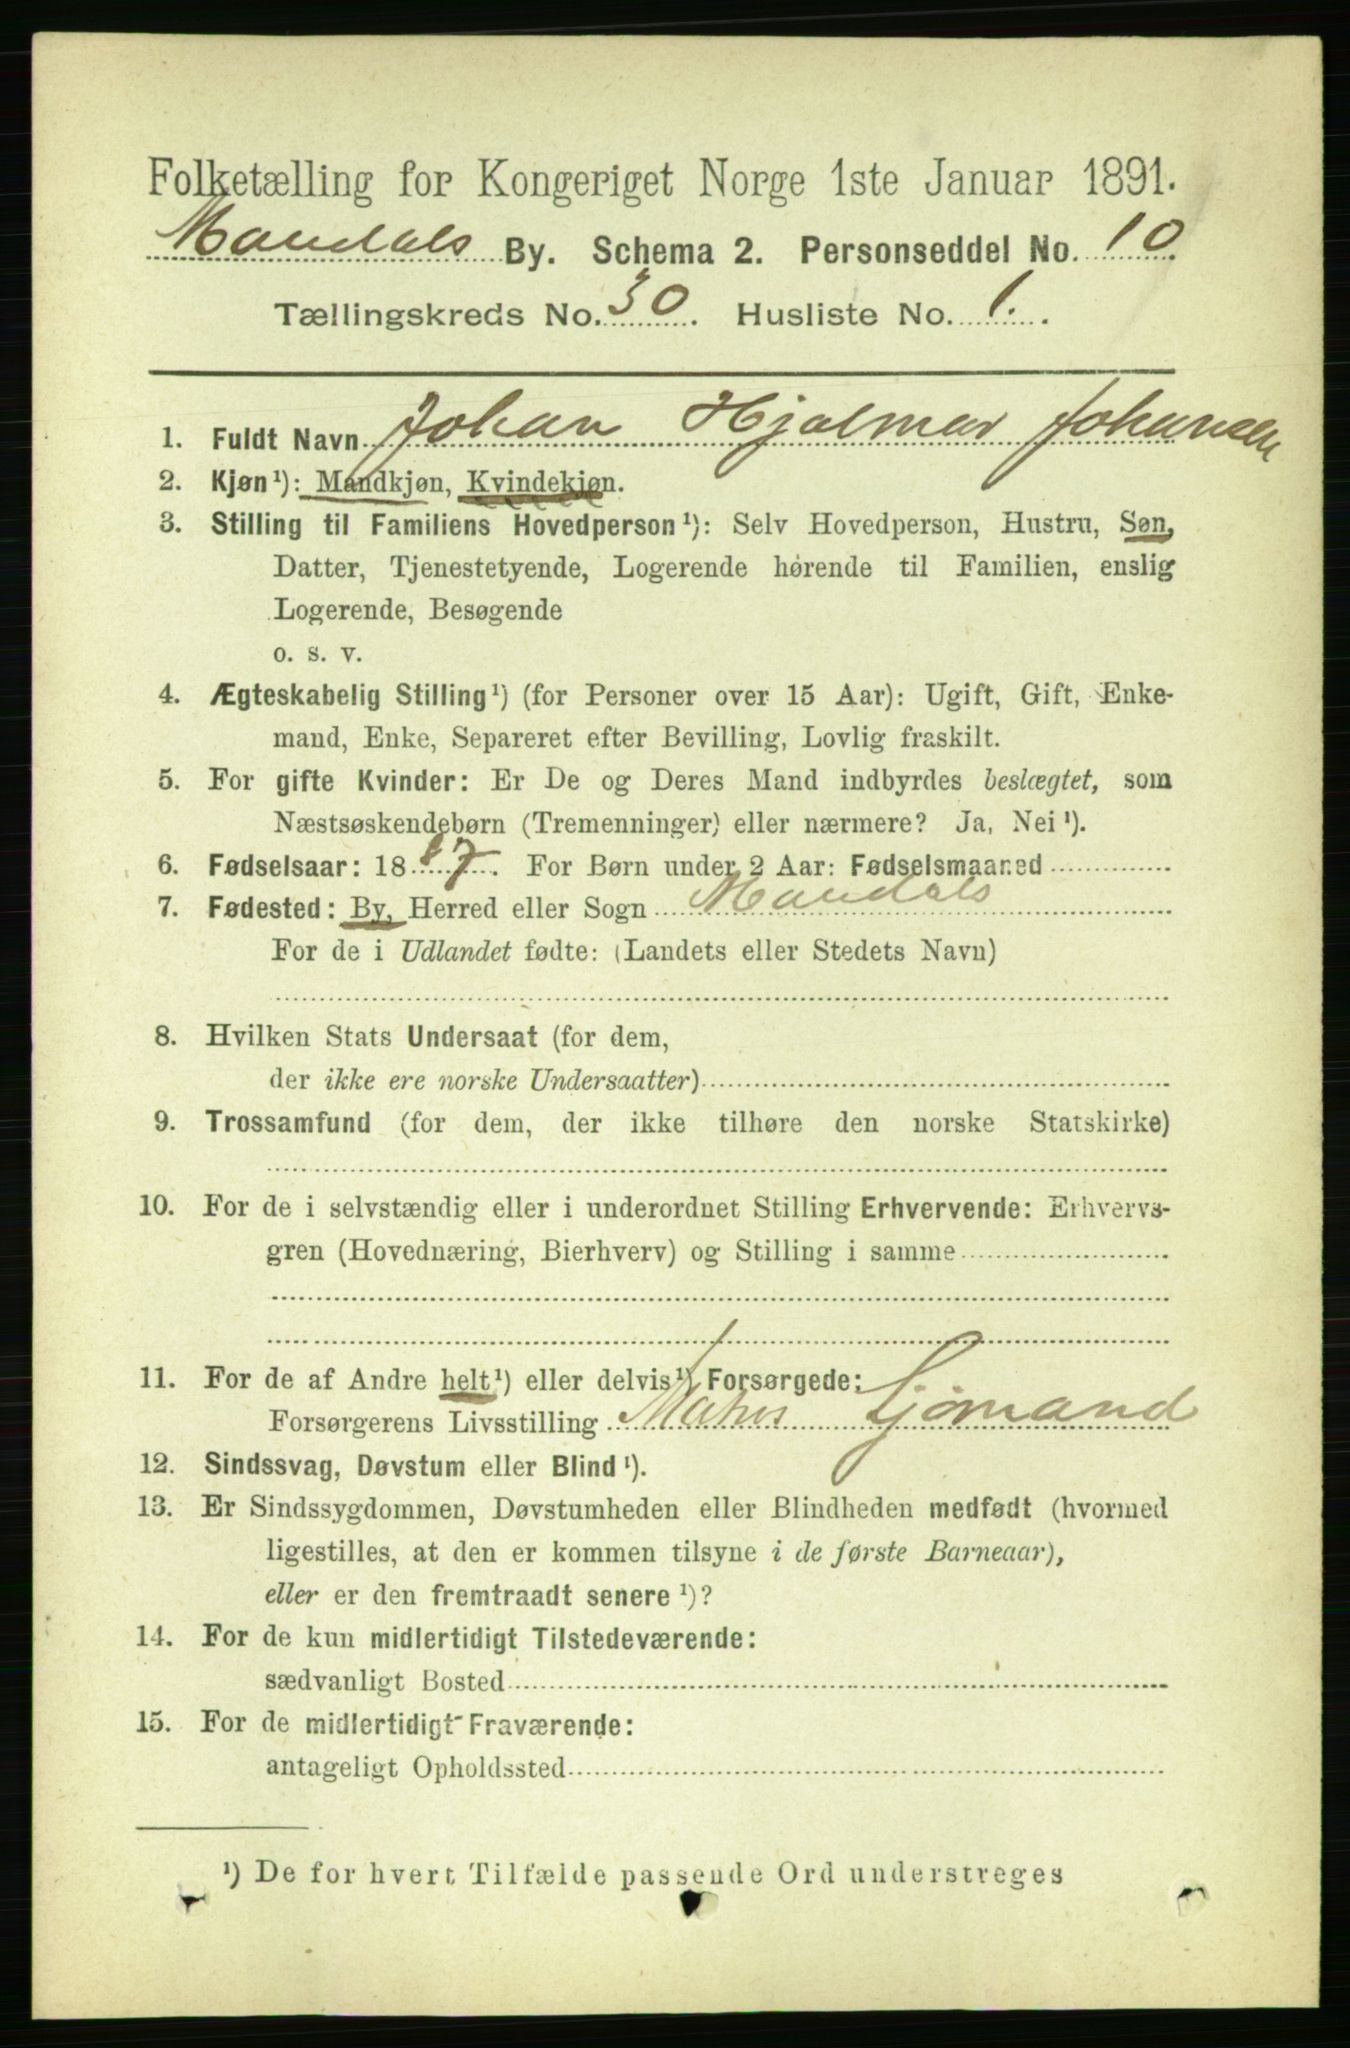 Folketælling for Kongeriget Norge 1ste Januar 1891.
Mandals By. Schema 2. Personseddel No. 10
Tællingskreds No. 30. Husliste No. 1.
1. Fuldt Navn Johan Hjalmar Johansen
2. Kjøn¹): Mandkjøn, Kvindekjøn.
3. Stilling til Familiens Hovedperson¹): Selv Hovedperson, Hustru, Søn,
Datter, Tjenestetyende, Logerende hørende til Familien, enslig
Logerende, Besøgende
o. s. v.
4. Ægteskabelig Stilling¹) (for Personer over 15 Aar): Ugift, Gift, Enke-
mand, Enke, Separeret efter Bevilling, Lovlig fraskilt.
5. For gifte Kvinder: Er De og Deres Mand indbyrdes beslægtet, som
Næstsøskendebørn (Tremenninger) eller nærmere? Ja, Nei¹).
6. Fødselsaar: 1887. For Børn under 2 Aar: Fødselsmaaned
7. Fødested: By, Herred eller Sogn Mandals
For de i Udlandet fødte: (Landets eller Stedets Navn)
8. Hvilken Stats Undersaat (for dem,
der ikke ere norske Undersaatter)
9. Trossamfund (for dem, der ikke tilhøre den norske Statskirke)
10. For de i selvstændig eller i underordnet Stilling Erhvervende: Erhvervs-
gren (Hovednæring, Bierhverv) og Stilling i samme
11. For de af Andre helt¹) eller delvis¹) Forsørgede:
Forsørgerens Livsstilling Matros Sjømand
12. Sindssvag, Døvstum eller Blind¹).
13. Er Sindssygdommen, Døvstumheden eller Blindheden medfødt (hvormed
ligestilles, at den er kommen tilsyne i de første Barneaar),
eller er den fremtraadt senere¹)?
14. For de kun midlertidigt Tilstedeværende:
sædvanligt Bosted
15. For de midlertidigt Fraværende:
antageligt Opholdssted
¹) De for hvert Tilfælde passende Ord understreges